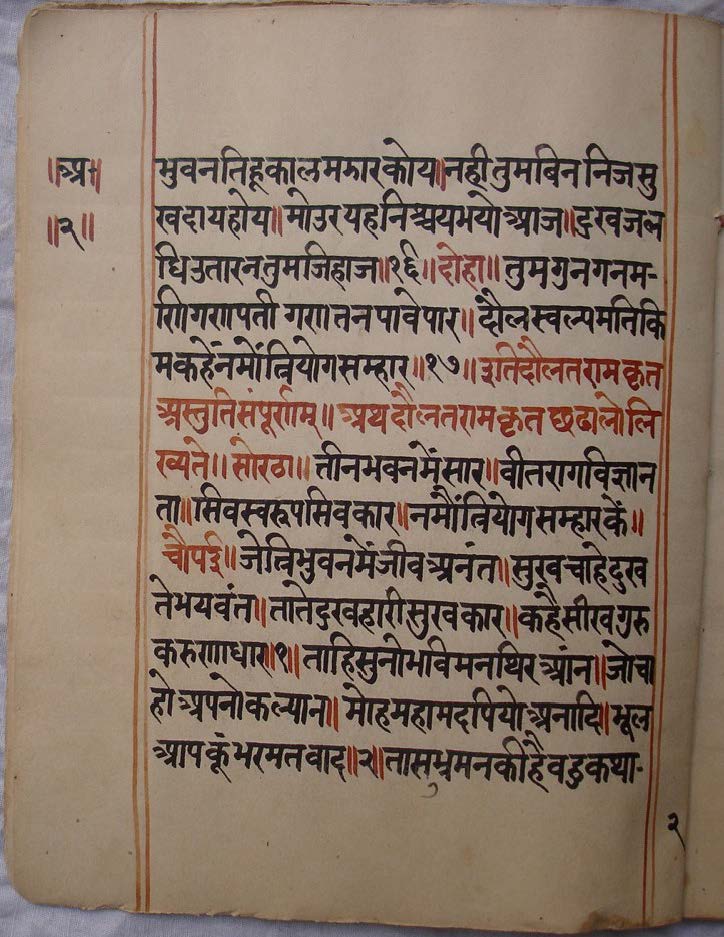 ॥अ॰॥
॥२॥
भुवनतिहूकालमझारकोय॥नहीतुमबिननिजसु
खदायहोय॥मोउरयहनिश्चयभयोआज॥दुखजल
धिउतारनतुमजिहाज॥१६॥दोहा॥तुमगुनगनम-
णिगणपती गणतनपावेपार॥दौलस्वल्पमतिकि
मकहेंनमोंत्रियोगसम्हार॥१७॥इतिदौलतरामकृत
अस्तुतिसंपूर्णम्॥अथदौलतरामकृतछढालोलि
ख्यते॥सोरठा॥तीनभवनमेंसार॥वीतरागविज्ञान
ता॥सिवस्वरूपसिवकार॥नमौंत्रियोगसम्हारकें॥
चौपई॥जेत्रिभुवनमेंजीवअनंत॥सुखचाहेदुख
तेभयवंत॥तातेदुखहारीसुखकार॥कहैसीखगुरु
करुणाधार॥१॥ताहिसुनोभविमनथिरआंन॥जोचा
होअपनोकल्यान॥मोहमहामदपियोअनादि॥भूल
आपकूंभरमतवाद॥२॥तासभ्रमनकीहैवहुकथा-
२